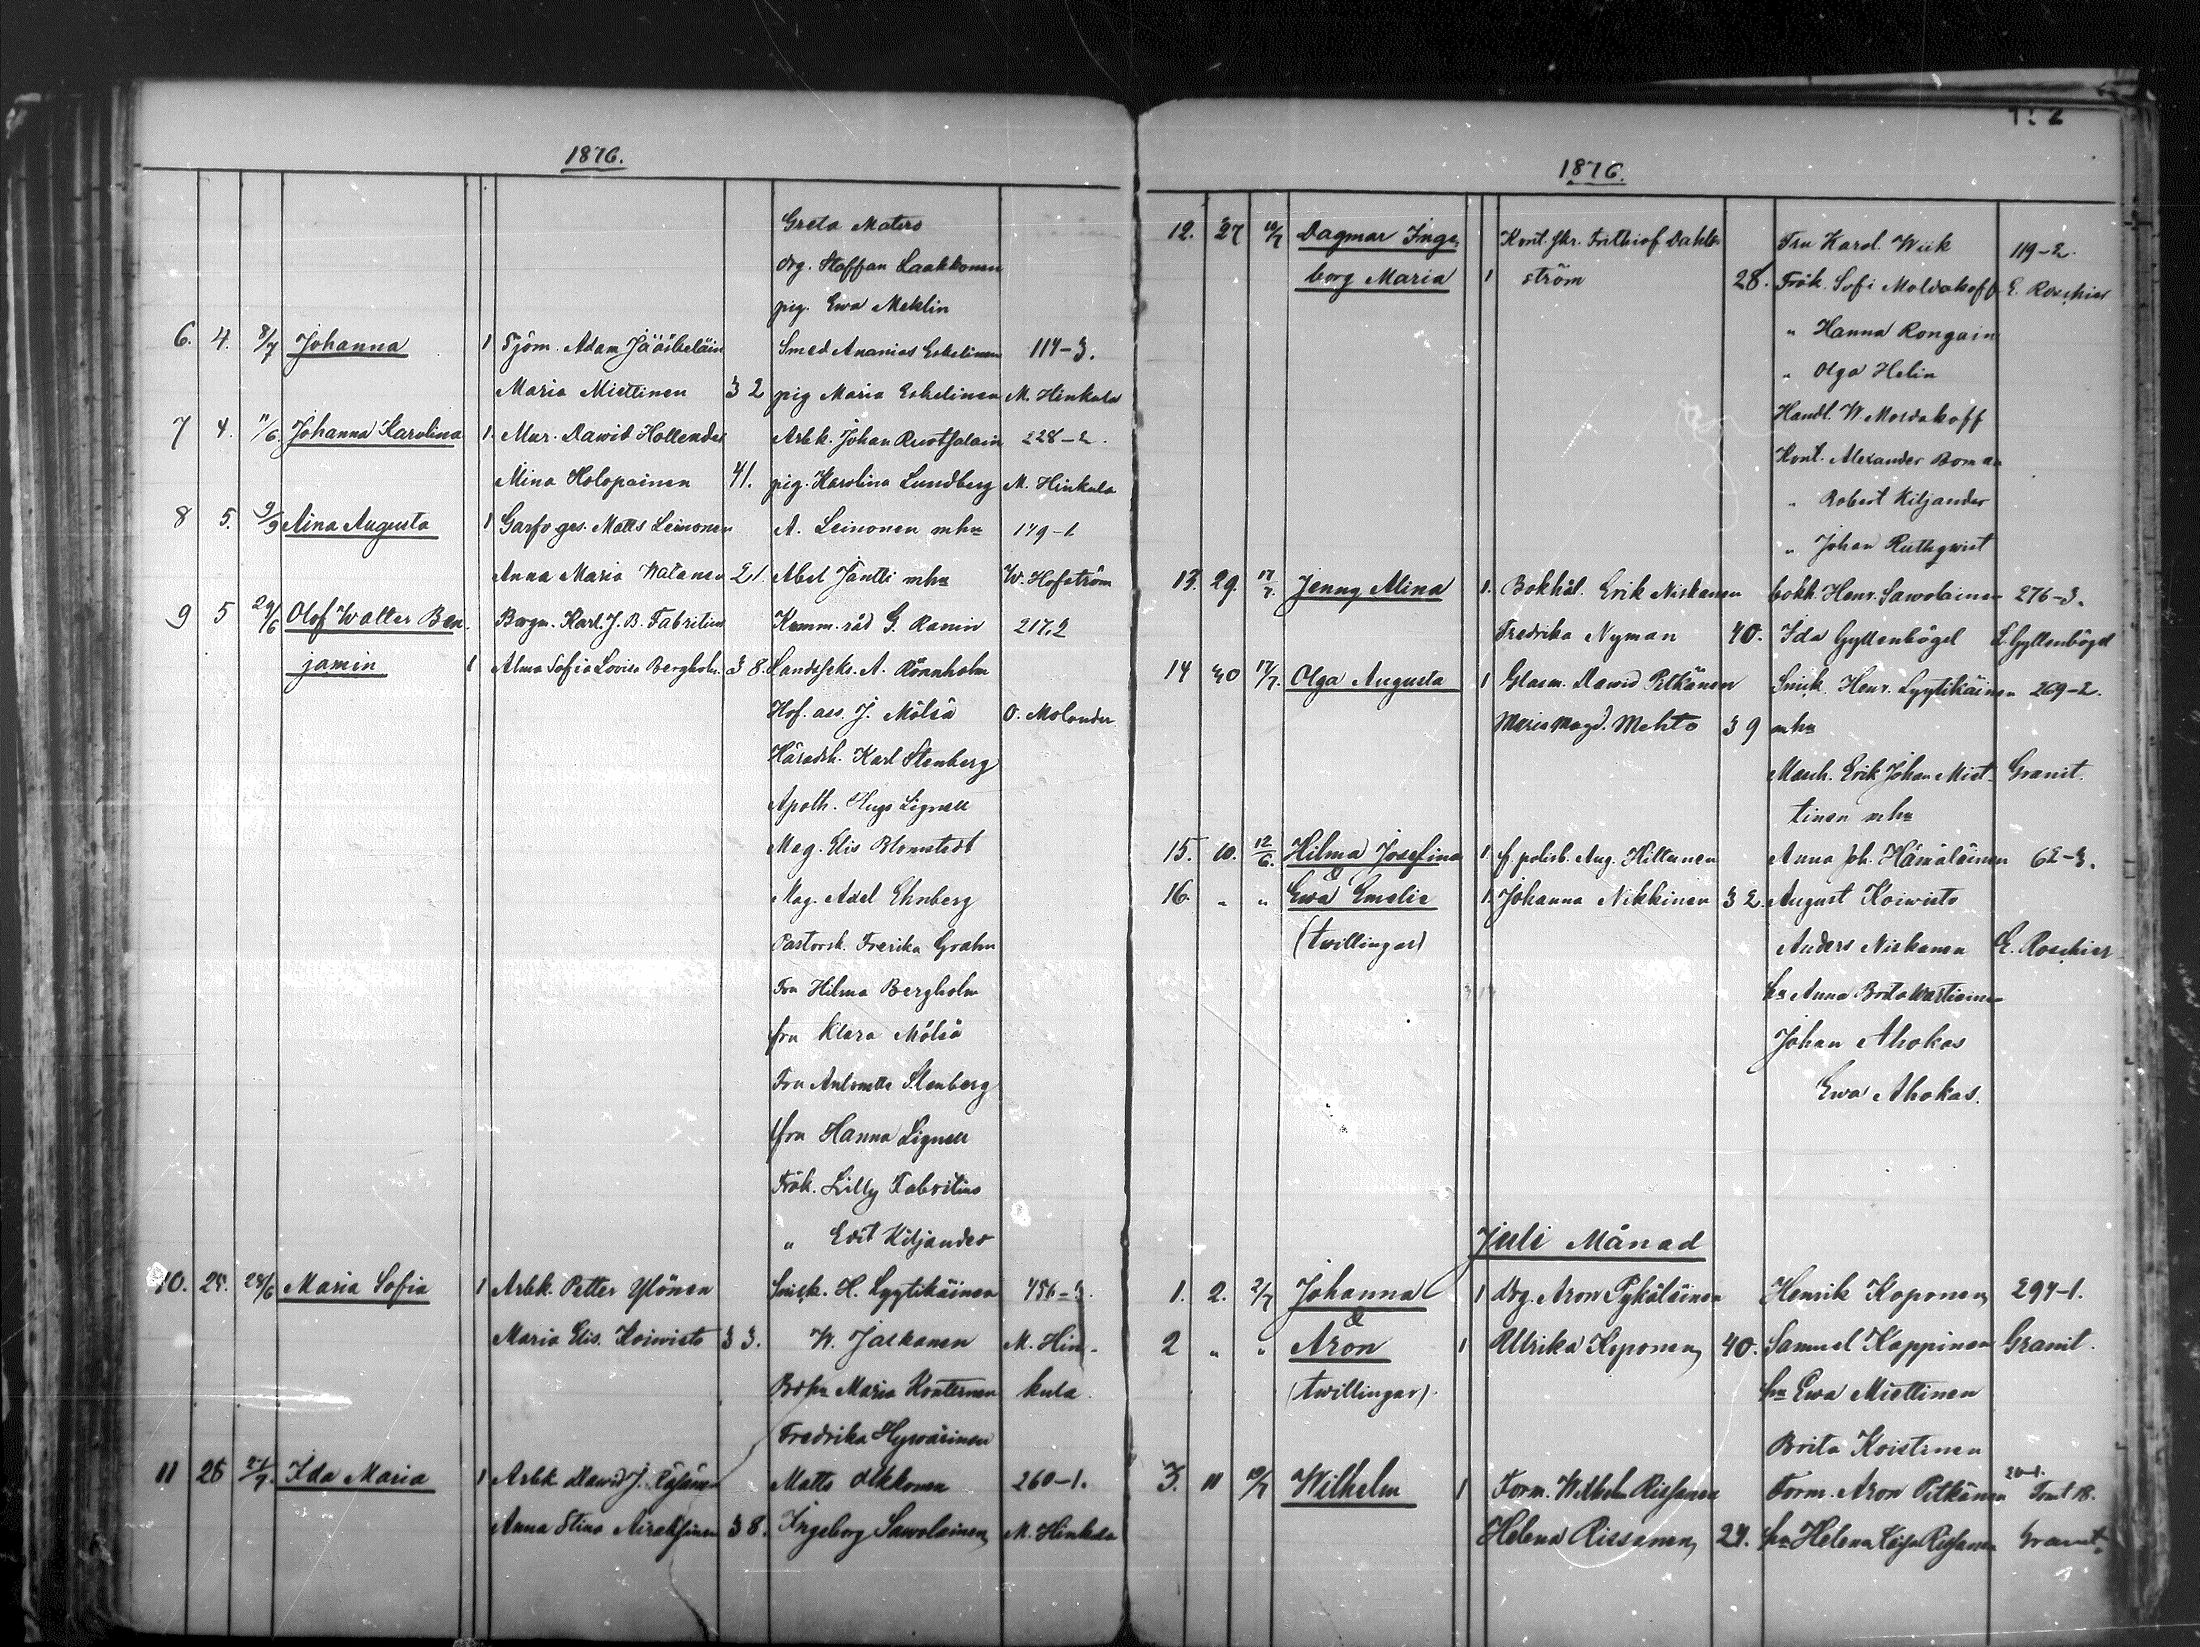 1876.
Greta Maters
drg. Staffan Laakkonen
pig. Ewa Meklin
6. 4. 8/7 Johanna 1 Tjöm. Adam Jääskeläin Smed Ananias Eskelinen 114-3.
Maria Miettinen 32 pig Maria Eskelinen M. Hinkula
7 4. 11/6. Johanna Karolina 1. Mur. Dawid Hollender Arbk. Johan Ruotsalain 228-2.
Mina Holopainen 41. pig. Karolina Lundberg M. Hinkula
8 5. 9/9 Aina Augusta 1 Garfv. ges. Matts Leinonen A. Leinonen mhu 149-1
Anna Maria Watanen 21. Abel Jäntti mhu W. Hofström
9 5 29/6 Olof Walter Ben Borgm. Karl. J. B. Fabritius Kamm. råd G. Ranin 217,2
jamin 1 Alma Sofia Lovisa Bergholm 38. Landssekr. A. Rönnholm
Hof. ass. J. Mölsä O. Molander
Häradsh. Karl Stenberg
Apoth. Hugo Lignell
Mag. Elis Blomstedt
Mag. Axel Ehnberg
Pastorsk. Frerika Grahn
Fru Hilma Bergholm
fru Klara Mölsä
Fru Antonetta Stenberg
fru Hanna Lignell
Frök. Lilly Fabritius
„ Edit Kiljander
10. 25. 28/6 Maria Sofia 1 Arbk. Petter Ylönen Snick. H. Lyytikäinen 456-3.
Maria Elis. Koiwisto 33. W. Jalkanen M. Hin-
Maria Kontturinen kula
Fredrika Hyvärinen
11 26 Ida Maria 1 Arbk Dawid J. Räsänen Matts Okkonen 260-1.
Anna Stina Airaksinen 38. Ingeborg Sawolainen M. Hinkula
1876.
12. 27 10/7 Dagmar Inge- Kont. skr. Frithiof Dahl- Fru Karol. Wiik 119-2.
borg Maria 1 ström 28. Frök. Sofi Moldakoff E. Roschier
„ Hanna Rongain
„ Olga Helin
Handl. W Moldakoff
Kont. Alexander Boman
„ Robert Kiljander
„ Johan Ruthqwist
13. 29. 17/7. Jenny Alina 1. Bokhål. Erik Niskanen bokh. Henr. Sawolainen 276-3.
Fredrika Nyman 40. Ida Gyllenbögel L. Gyllenbögel
14 30 17/7. Olga Augusta 1 Glasm. Dawid Pitkänen Snick. Henr. Lyytikäinen 269-2.
Maria Magd. Mehto 39 mhu
Masch. Erik Johan Miet- Granit.
tinen mhu
15. 10. 12/6. Hilma Josefina 1 f. polisb. Aug. Hiltunen Anna Joh. Hämäläinen 62-3.
&
16. „ „ Ewa Emelie 1. Johanna Nikkinen 32. August Koiwisto
(twillingar) Anders Niskanen E. Roschier
hu Anna Brita Wartiainen
Johan Ahokas
Ewa Ahokas.
Juli Månad
1. 2. 2/7 Johanna 1 Drg. Aron Pykäläinen Henrik Koponen 294-1.
&
2 „ „ Aron 1 Ulrika Koponen 40. Samuel Kappinen Granit.
(twillingar). hu Ewa Miettinen
Brita Koistinen
3. 11 Wilhelm 1 Torm. Wilhelm Rissanen Torm. Aron Pitkänen Tomt 18.
Helena Rissanen 24. hu Helena Rissanen Granit.